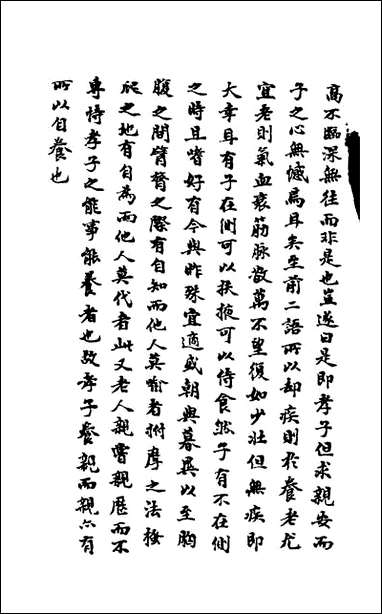 高不臨深無往而非是也豈遂曰是即孝子但求親安而
子之心無憾焉耳矣至前二語所以却疾則於養老尤
宜老則氣血衰筋脉散萬不望復如少壯但無疾即
大幸耳有子在側可以扶掖可以侍食然子有不在側
之時且嗜好有今與昨殊宜適或朝與暮異以至胸
腹之間臂脊之際有自知而他人莫喻者拊摩之法搔
爬之地有自為而他人莫代者此又老人親嘗親歷而不
專恃孝子之能事能養者也故孝子養親而親亦有
所以自養也